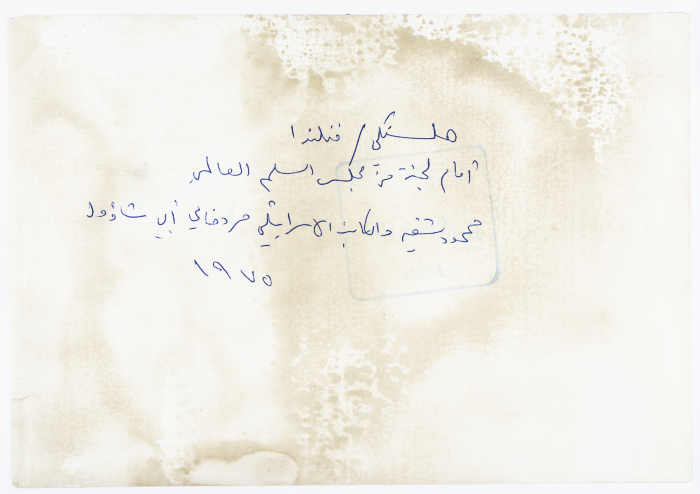 هلسنكي / فنلندا
أمام لجنة من مجلس السلم العالمي
محمود شقير والكاتب الاسرائيلي مردخاي أبي شاؤول
١٩٧٥